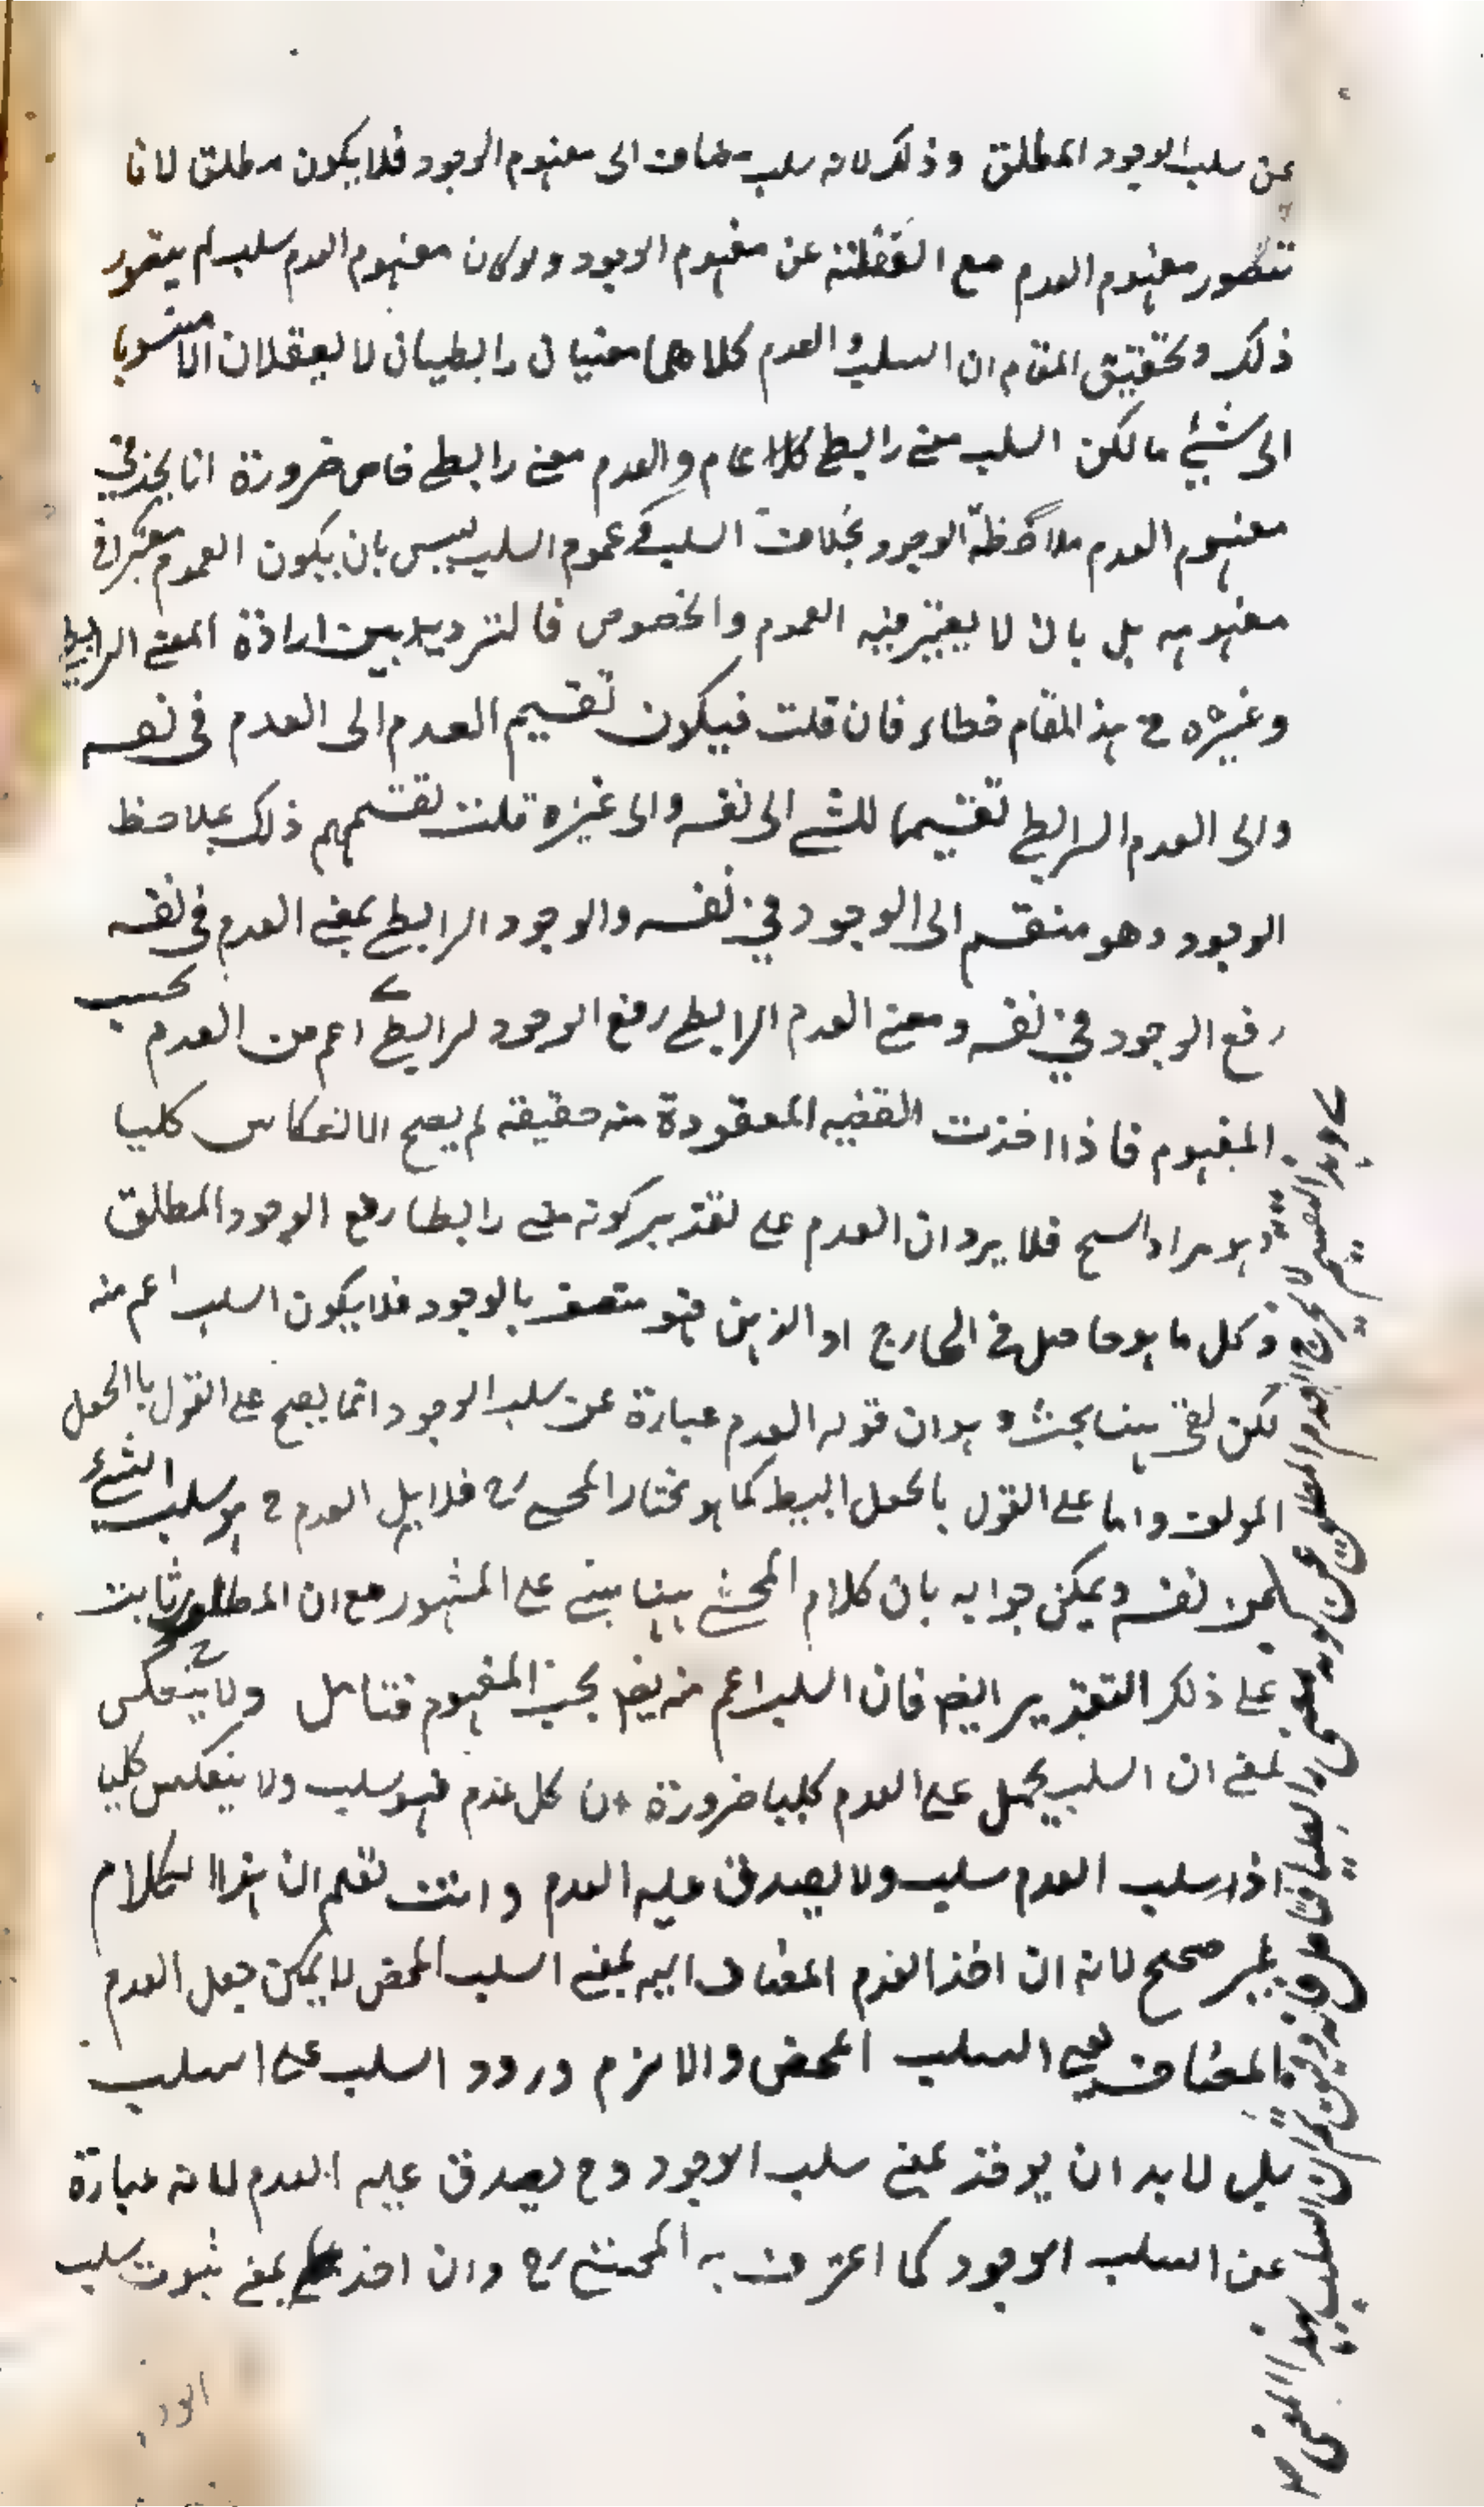 عن سلب الوجود المطلق وذلك لانه سلب مضاف الى مفهوم الوجود فلا يكون مطلق لانا
نتصور مفهوم العدم مع الغفلة عن مفهوم الوجود ولو كان مفهوم العدم سلب لم يتصور
ذلك وتحقيق المقام ان السلب والعدم كلاهما معنيان رابطيان لا يعقلان الا منسوبا
الى شيئ ما لكن السلب معنى رابطي كلا عام والعدم معنى رابطي خاص ضرورة انا نجد في
مفهوم العدم ملاحظة الوجود بخلاف السلب في عموم السلب ليس بان يكون العموم معتبرا في
مفهومه بل بان لا يعتبر فيه العموم والخصوص فالترديد بين ارادة المعنى الرابطي
وغيره في هذا المقام خطاء فان قلت فيكون تقسيم العدم الى العدم في نفسه
والى العدم الرابطي تقسيما للشي الى نفسه والى غيره قلت تقسيمهم ذلك بملاحظ
الوجود وهو منقسم الى الوجود في نفسه والوجود الرابطي بمعنى العدم في نفسه
رفع الوجود في نفسه ومعنى العدم الرابطي رفع الوجود لرابطي اعم من العدم بحسب
المفهوم فاذا اخذت القضيه المعقودة منه حقيقة لم يصح الانعكاس كليا
هو مراد السيح فلا يرد ان العدم على تقدير كونه معنى رابطا رفع الوجود المطلق
وكل ما هو حاصل في الخارج او الذهن فهو متصف بالوجود فلا يكون السلب اعم منه
لكن بقى ههنا بحث وهو ان قوله العدم عبارة عن سلب الوجود انما يصح على القول بالجعل
المولف واما على القول بالجعل البسيط كما هو مختار المحشى رح فلا بل العدم ح هو سلب الشيء
عن نفسه ويمكن جوابه بان كلام المحشي ههنا مبني على المشهور مع ان المطلوب ثابت
على ذلك التقدير ايضا فان السلب اعم منه ايضا بحسب المفهوم فتامل ولا ينعكس
بمعنى ان السلب يحمل على العدم كليا ضرورة ان كل عدم فهو سلب ولا ينعكس كليا
اذ سلب العدم سلب ولا يصدق عليه العدم وانت تعلم ان هذا الكلام
غير صحيح لانه ان اخذ العدم المضاف اليه بمعنى السلب المحض لا يمكن جعل العدم
المضاف بمعى السلب المحض والا لزم ورود السلب على السلب
بل لا بد ان يوخذ بمعنى سلب الوجود وح يصدق عليه العدم لانه عبارة
عن السلب الوجود كما اعترف به المحشي رح وان اخذ بمعنى ثبوت سلب
الوجود
وهذا التقسيم لا يخرج العدم المطلق عن كونه معنى رابطيا فتامل فانه دقيق ثم ان السلب بهذا المعنى